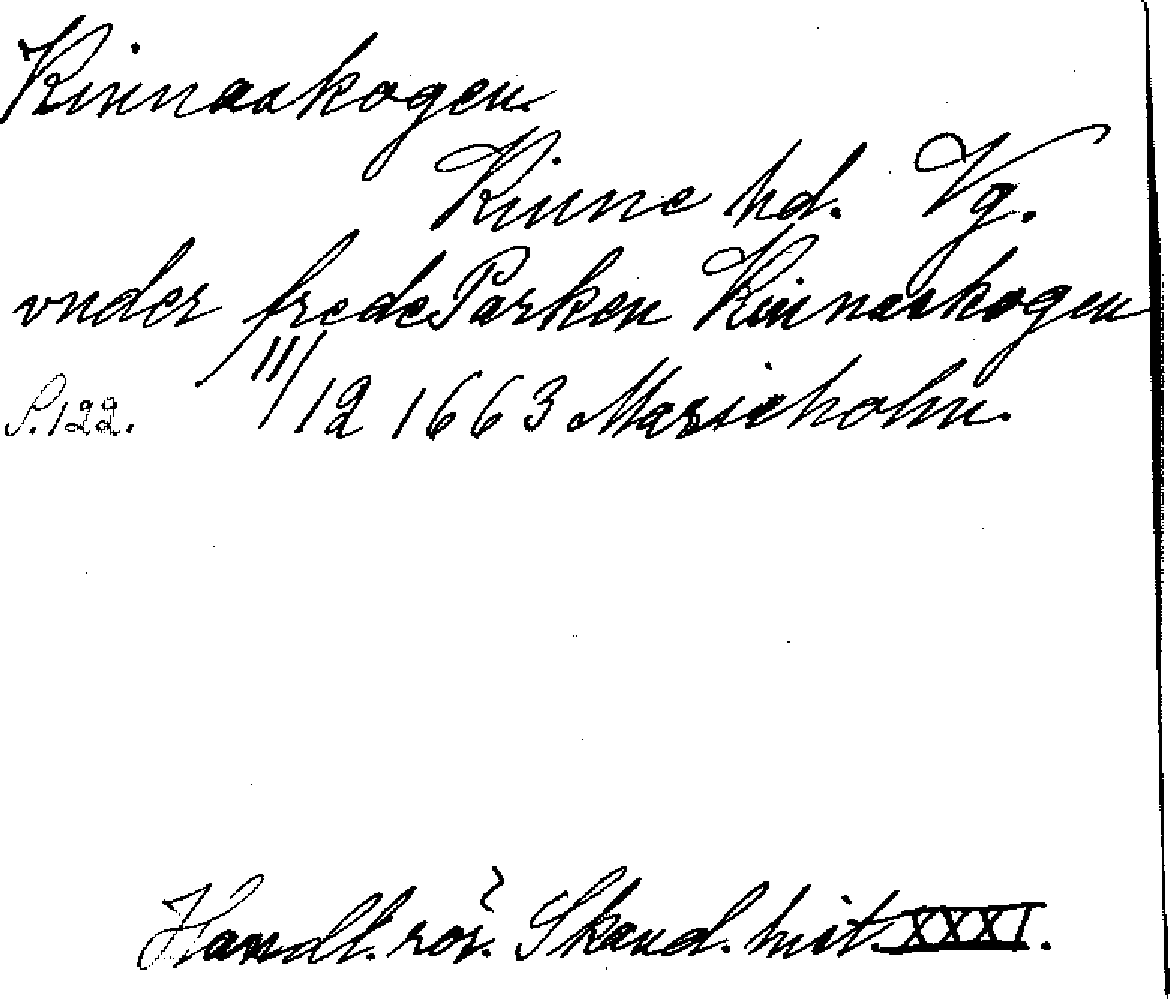 Kinnaskogen.
Kinne hd. Vg.
vnder frede Parken Kinnaskogen
S. 122. 11/12 1663 Marieholm.
Handl. rör. Skand. hist. XXXI.